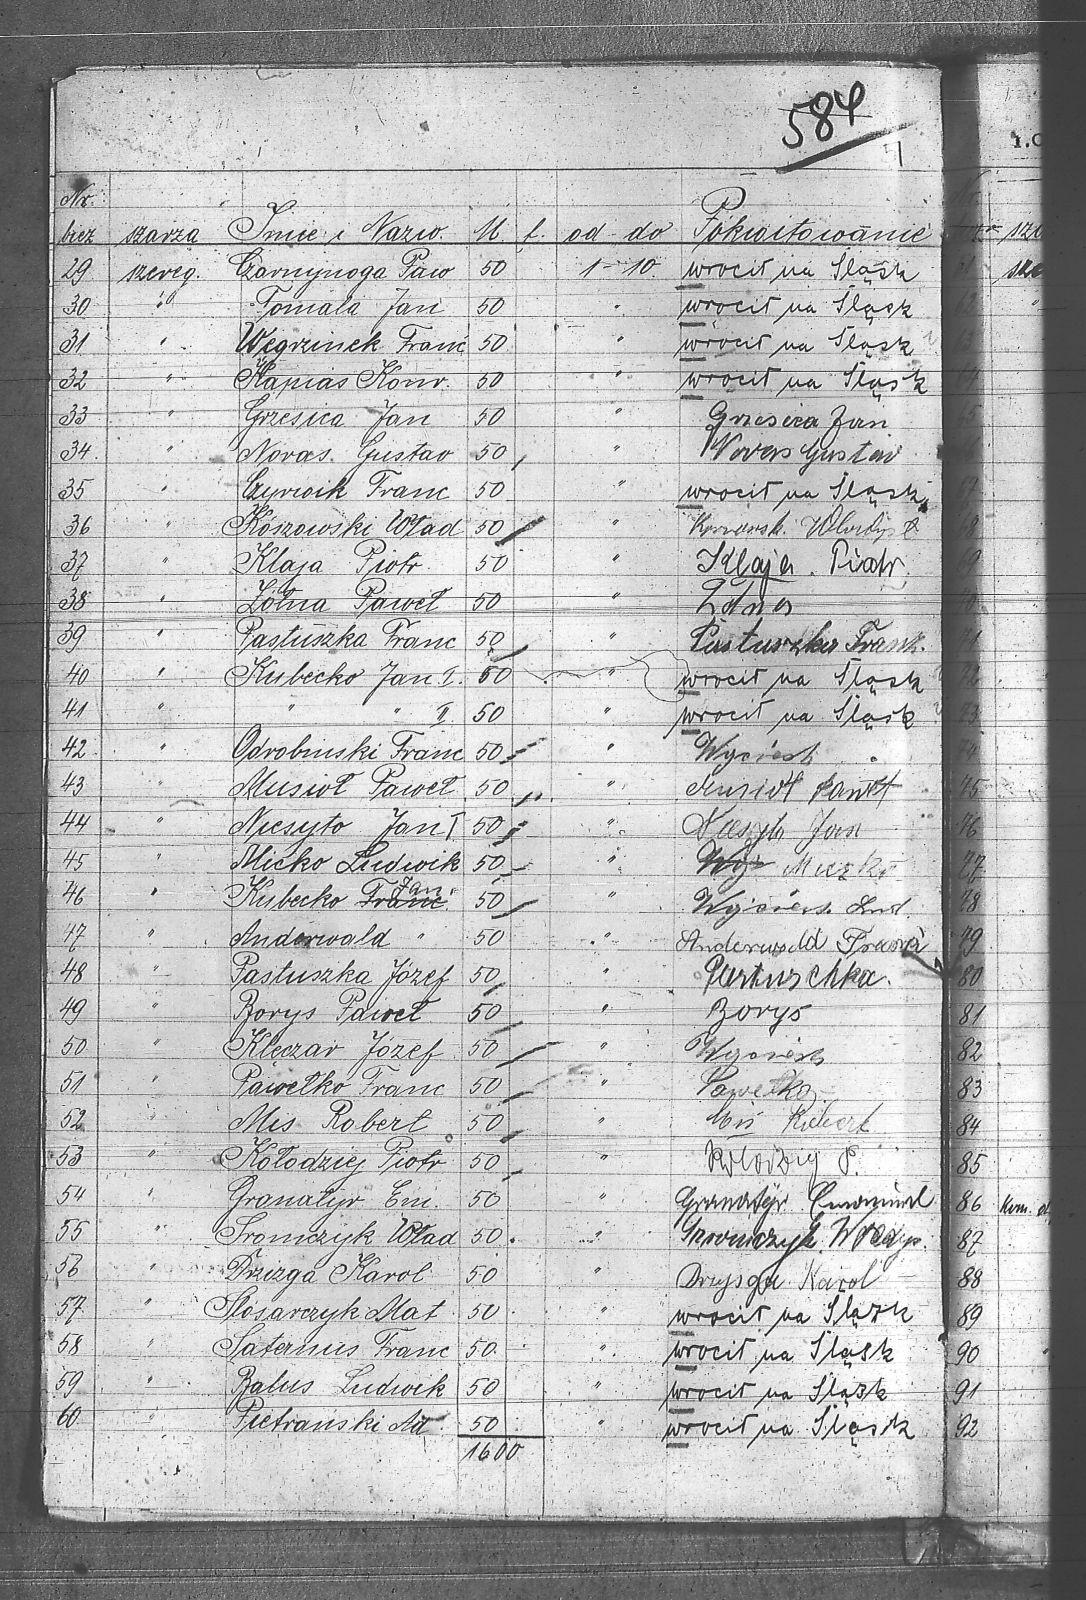 584
Nr.
bież szarża Imię i Nazw. M f. od do Pokwitowanie
29 szereg. Czarnynoga Paw 50 1-10 wrócił na Śląsk
30 " Tomala Jan 50 " wrócił na Śląsk
31 " Węgrzinek Franc 50 " wrócił na Śląsk
32 " Kapias Konr. 50 " wrócił na Śląsk
33 " Grzesica Jan 50 " Grzesica Jan
34. " Novas Gustav 50 " Novas Gustav
35 " Czyrwik Franc 50 " wrócił na Śląsk
36 " Koszowski Wład 50 "
37 " Klaja Piotr 50 " Klaja Piotr
38 " Żółna Paweł 50 "
39 " Pastuszka Franc 50 " Pastuszka Franz.
40 " Kubecko Jan I. 50 " wrócił na Śląsk
41 " " " II 50 " wrócił na Śląsk
42 " Odrobinski Franc 50 "
43 " Musioł Paweł 50 " Musioł Paweł
44 " Niesyto Jan I 50 " Jan
45 " Micko Ludwik 50 "
46 " Kubecko Franc Jan 50 "
47 " Anderwald " 50 " Anderwald
48 " Pastuszka Józef 50 " Pastuschka.
49 " Borys Paweł 50 " Borys
50 " Kleczar Józef 50 "
51 " Pawełko Franc 50 " Pawełko
52 " Mis Robert 50 "
53 " Kołodziej Piotr 50 " P.
54 " Granatyr Em. 50 " Granatyr
55 " Sromczyk Wład 50 "
56 " Drzizga Karol 50 " Karol
57 " Slosarczyk Mat. 50 " wrócił na Śląsk
58 " Saternus Franc 50 " wrócił na Śląsk
59 " Balus Ludwik 50 " wrócił na Śląsk
60 " Pietranski Ad. 50 " wrócił na Śląsk
1600
79
80
81
82
83
84
85
86
87
88
89
90
91
92